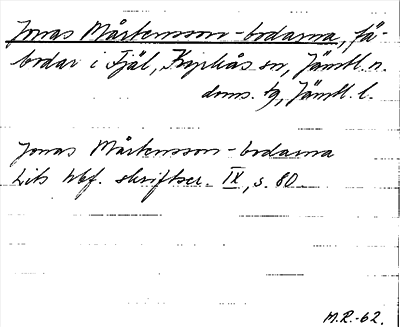 Jonas Mårtensson-bodarna, fä-
bodar i Fjäl, Kyrkås sn, Jämtl. n.
doms. tg, Jämtl. l.
Jonas Mårtensson-bodarna
Lits hbf. skriftser. IX, s. 80.
M.R.-62.